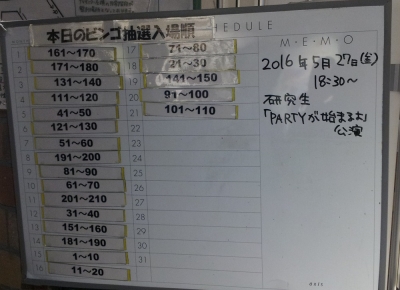 本日のビンゴ抽選入場順
SCHEDULE
1 161〜170
2 171〜180
3 131〜140
4 111〜120
5 41〜50
6 121〜130
7 51〜60
8 191〜200
9 81〜90
10 61〜70
11 201〜210
12 31〜40
13 151〜160
14 181〜190
15 1〜10
16 11〜20
17 71〜80
18 21〜30
19 141〜150
20 91〜100
21 101〜110
22
23
24
25
26
27
28
29
30
31
M・E・M・O
2016年5月27日(金)
18:30〜
研究生
「PARTYが始まるよ」
公演